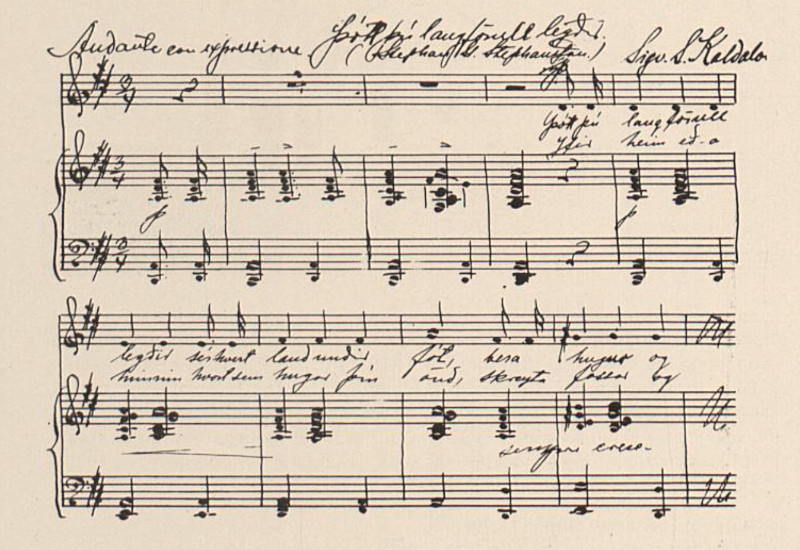 Andante con espressione. Þótt þú langförull legðir.
(Stephan G. Stephansson.) Sigv. S. Kaldalóns
3/4
Þótt þú langförull
Yfir heim eð-a
3/4
p p
3/4
legðir sérhvert land undir fót, bera hugur og
himin hvort sem hugar þín önd, skreyta fossar og
sempre cresc-